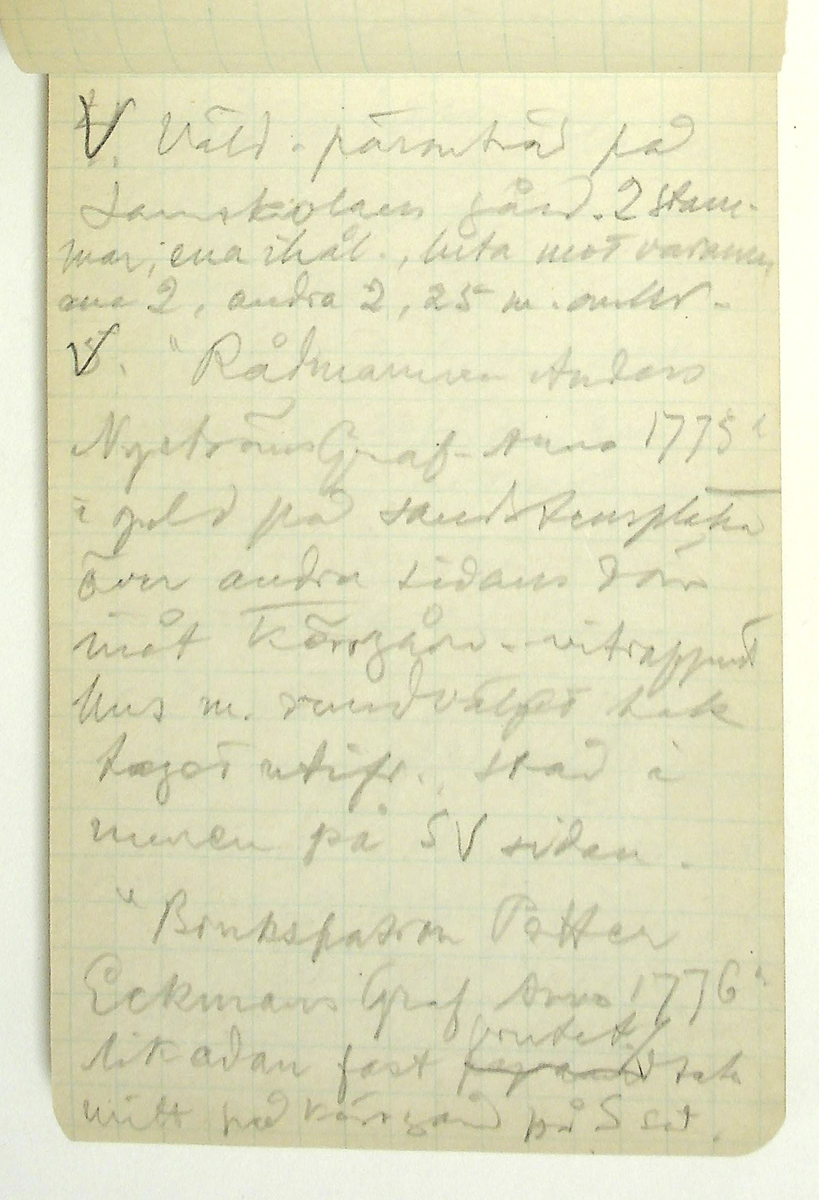 V. Väld. päronträd på
Samskolans gård. 2 stam-
mar, ena ihål., luta mot varann,
ena 2, andra 2,25 m. omkr.
V. "Rådmannen Anders
Nyströms Graf Anno 1775"
i guld på sandstensplatta
över andra sidans dörr
mot kyrkogårn. vitrappat
hus m. rundvälvt tak
taget utifr., står i
muren på SV sidan.
"Brukspatron Petter
Eckmans Graf Anno 1776"
likadan fast brutet tak
mitt på kyrkogård på S